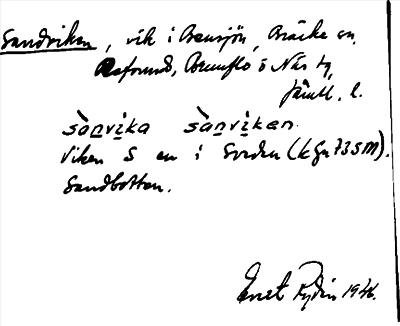 Sandviken, vik i Bensjön, Bräcke sn,
Refsunds, Brunflo o Näs tg,
Jämtl. l.
sànvika sànviken.
Viken S en i Sörden (kfn 735M).
Sandbotten.
Ernst Rydin 1946.